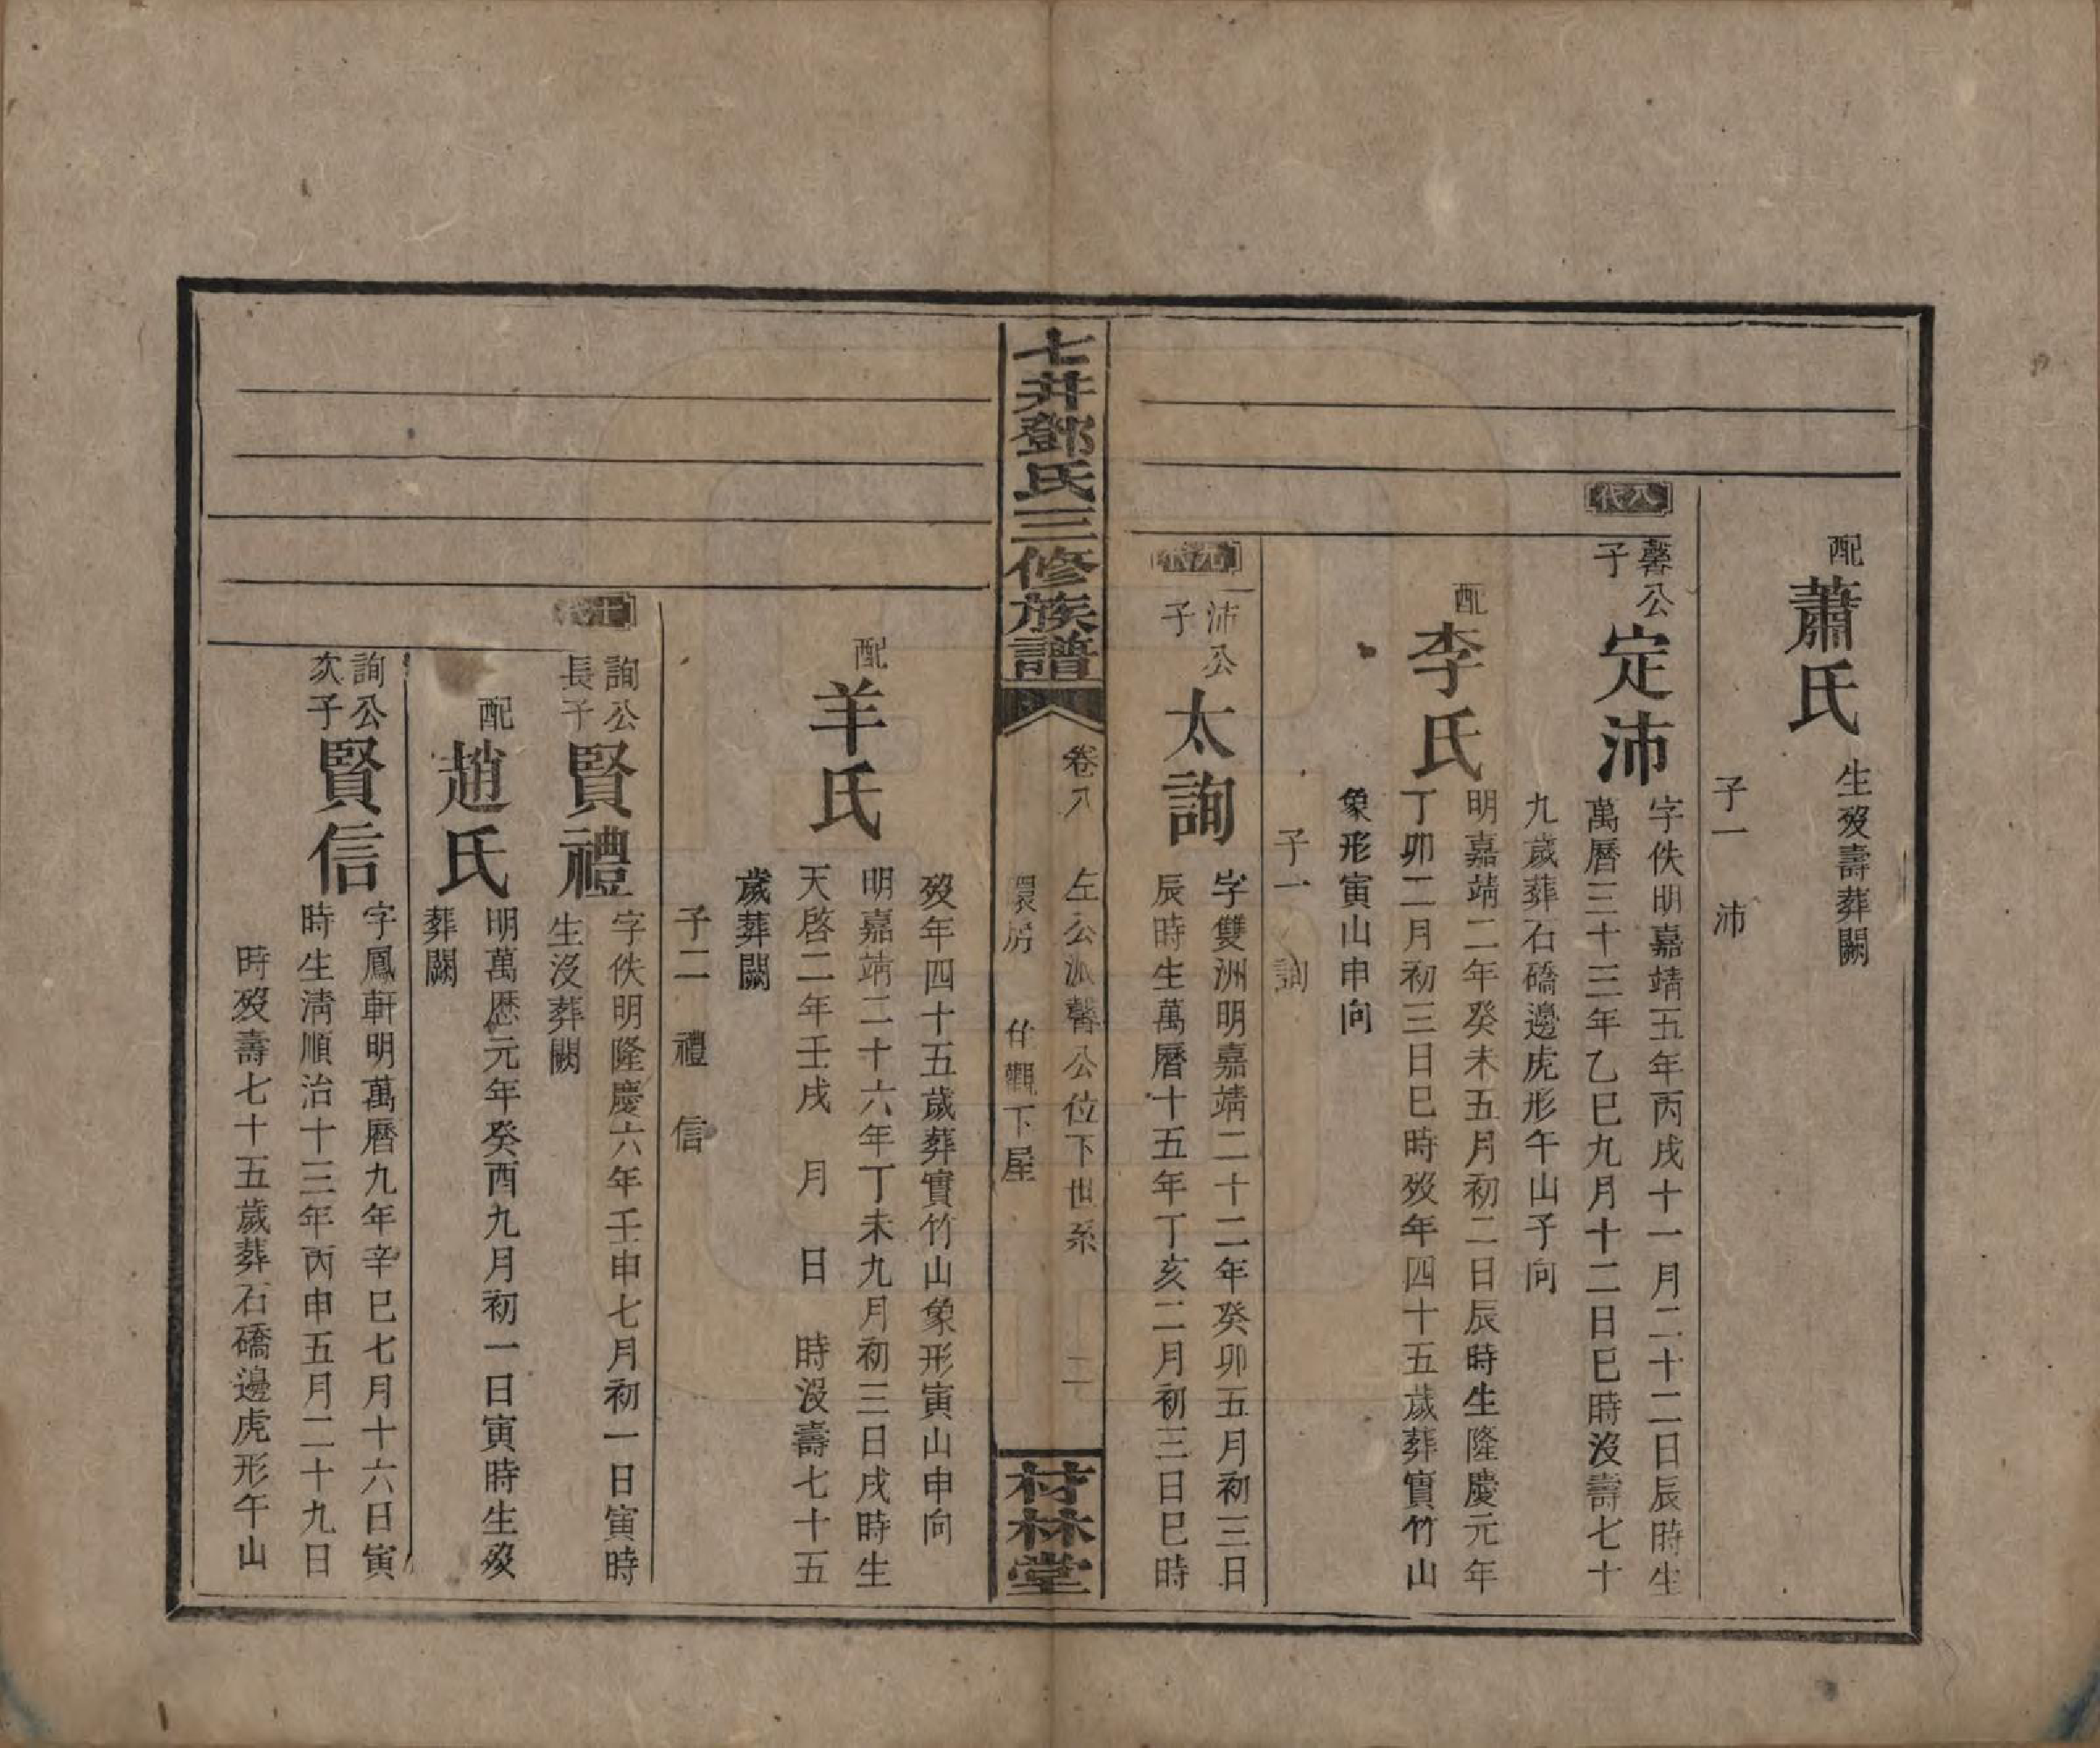 配
蕭氏
生歿壽葬闕
子一　沛
八代
馨公
子
定沛
字佚明嘉靖五年丙戌十一月二十二日辰時生
萬曆三十三年乙巳九月十二日巳時沒壽七十
九歲葬石磽邊虎形午山子向
配
李氏
明嘉靖二年癸未五月初二日辰時生隆慶元年
丁卯二月初三日巳時歿年四十五歲葬實竹山
象形寅山申向
子一　詢
九代
沛公
子
太詢
字雙洲明嘉靖二十二年癸卯五月初三日
辰時生萬曆十五年丁亥二月初三日巳時
七井鄧氏三修族譜
卷八　左公派馨公位下世系　二
房　仕觀下屋
材林堂
歿年四十五歲葬實竹山象形寅山申向
配
羊氏
明嘉靖二十六年丁未九月初三日戌時生
天啓二年壬戌　月　日　時沒壽七十五
歲葬闕
子二　禮　信
十代
詢公
長子
賢禮
字佚明隆慶六年壬申七月初一日寅時
生沒葬闕
配
趙氏
明萬歷元年癸酉九月初一日寅時生歿
葬闕
詢公
次子
賢信
字鳳軒明萬曆九年辛巳七月十六日寅
時生清順治十三年丙申五月二十九日
時歿壽七十五歲葬石磽邊虎形午山